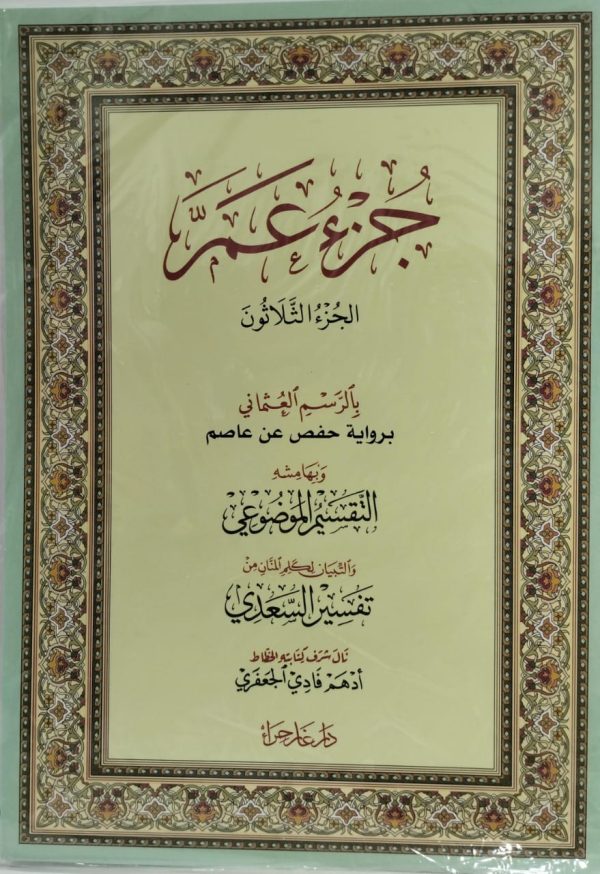 جُزْءُ عَمَّ
الجُزْءُ الثَّلَاثُونَ
بِالرَّسْمِ العُثْمَانِي
برواية حفص عن عاصم
وَبِهَامِشِهِ
التَّقْسِيمُ المَوْضُوعِيُّ
وَالتِّبْيَان لِكَلِمِ المَنَّانِ مِنْ
تَفْسِيرُ السَّعْدِيّ
نَالَ شَرَفَ كِتَابَتِهِ الخَطَّاط
أَدْهَم فَادِي الجَعْفَرِي
دَار غَار حِرَاء